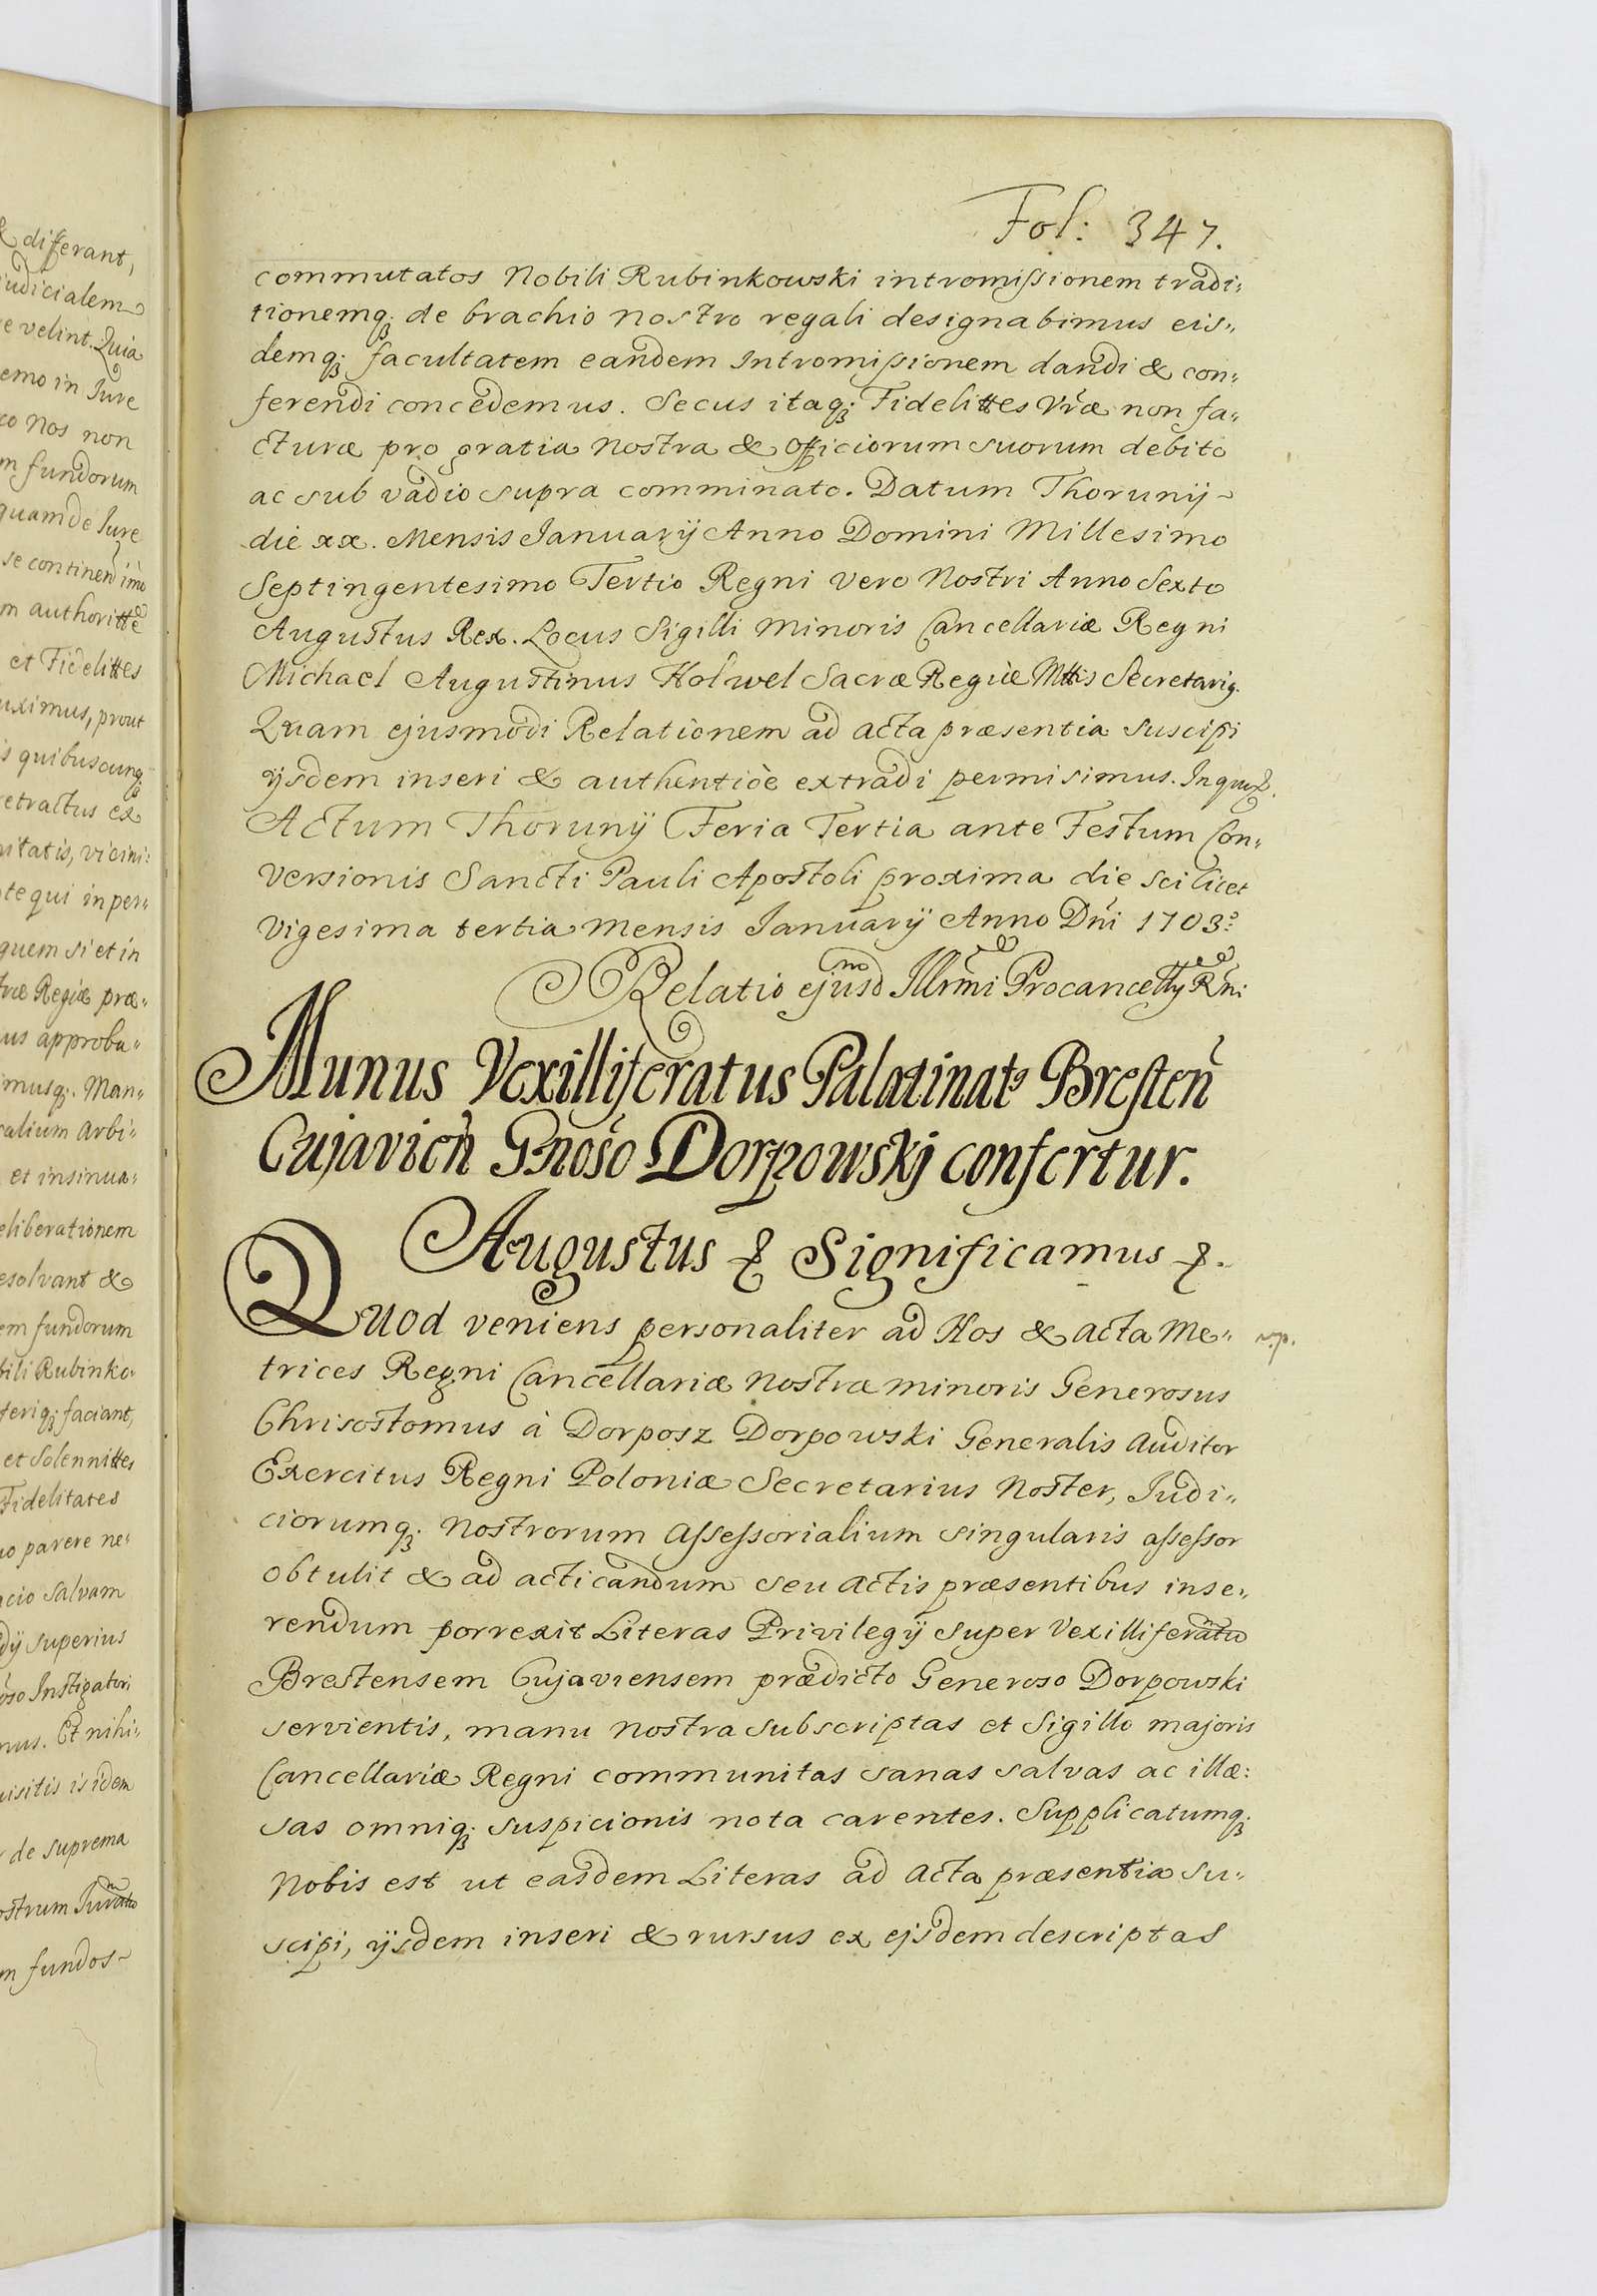 & differant,
judicialem
e velint. Quia
emo in Jure
co Nos non
m fundorum
quam de Jure
se continen imo
m authoritte
et Fidelittes
uximus, prout
is quibuscunq
retractus ex
nitatis, vicini:
te qui in per„
quem si et in
træ Regiæ præ„
us approba„
imusq;. Man„
ralium Arbi„
et insinua„
eliberationem
esolvant &
em fundorum
bili Rubinko„
feriq; faciant,
et Solennittes
Fidelitates
uo parere ne„
acio salvam
dij superius
oso Instigatori
mus. Et nihi„
uisitis is idem
de suprema
ostrum
m fundos~
Fol: 347.
commutatos Nobili Rubinkowski intromissionem tradi„
tionemq; de brachio nostro regali designabimus eis„
demq; facultatem eandem Intromissionem dandi & con„
ferendi concedemus. Secus itaq; Fidelittes Vræ non fa„
cturæ pro gratia nostra & officiorum suorum debito
ac sub vadio supra comminato. Datum Thorunij~
die xx. Mensis Januarij Anno Domini Millesimo
Septingentesimo Tertio Regni vero Nostri Anno Sexto
Augustus Rex. Locus Sigilli Minoris Cancellariæ Regni
Michael Augustinus Holwel Sacræ Regiæ Mttis Secretarig.
Quam ejusmodi Relationem ad acta præsentia suscipi
ijsdem inseri & authentice extradi permisimus. In quor.
Actum Thorunij Feria Tertia ante Festum Con„
versionis Sancti Pauli Apostoli proxima die scilicet
vigesima tertia mensis Januarij Anno Dni 1703:
Relatio ejusd Illrmi Procancellrij Rni
Munus Vexilliferatus Palatinats Bresten
Cujavien Gnoso Dorpowskj confertur.
Augustus & Significamus &.
Quod veniens personaliter ad Nos & Acta Me„ np.
trices Regni Cancellariæ Nostræ minoris Generosus
Chrisostomus à Dorposz Dorpowski Generalis Auditor
Exercitus Regni Poloniæ Secretarius Noster, Judi„
ciorumq; nostrorum Assessorialium singularis assessor
obtulit & ad acticandum seu actis præsentibus inse„
rendum porrexit Literas Privilegij super Vexilliferatu
Brestensem Cujaviensem prædicto Generoso Dorpowski
servientis, manu nostra subscriptas et Sigillo majoris
Cancellariæ Regni communitas sanas salvas ac illæ:
sas omniq; suspicionis nota carentes. Supplicatumq;
Nobis est ut easdem Literas ad Acta præsentia su„
scipi, ijsdem inseri & rursus ex ejsdem descriptas